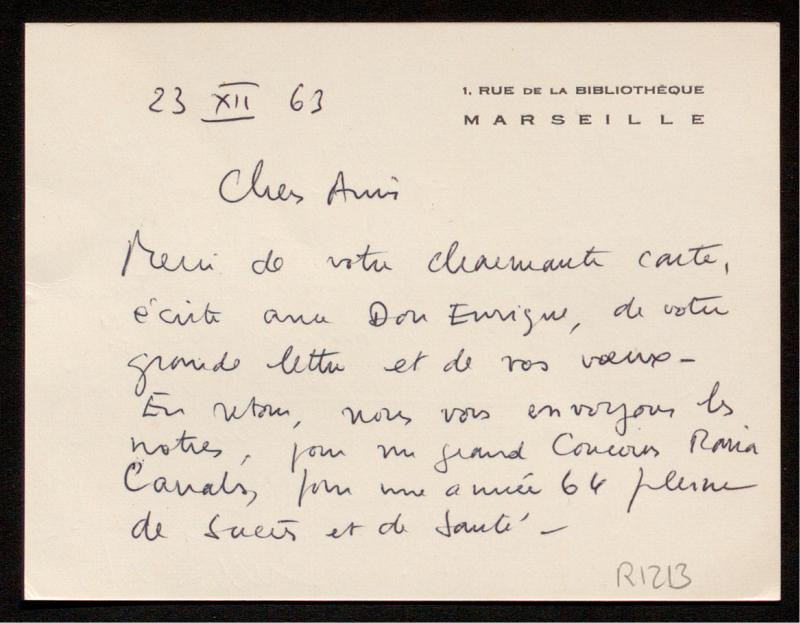 23 XII 63
1, RUE DE LA BIBLIOTHÈQUE
MARSEILLE
Chers Amis
Merci de votre charmante carte,
écrite avec Don Enrique, de votre
grande lettre et de vos vœux –
En retour, nous vous envoyons les
notres, pour un grand Concours Maria
Canals, pour une année 64 pleine
de succès et de santé –
R1213